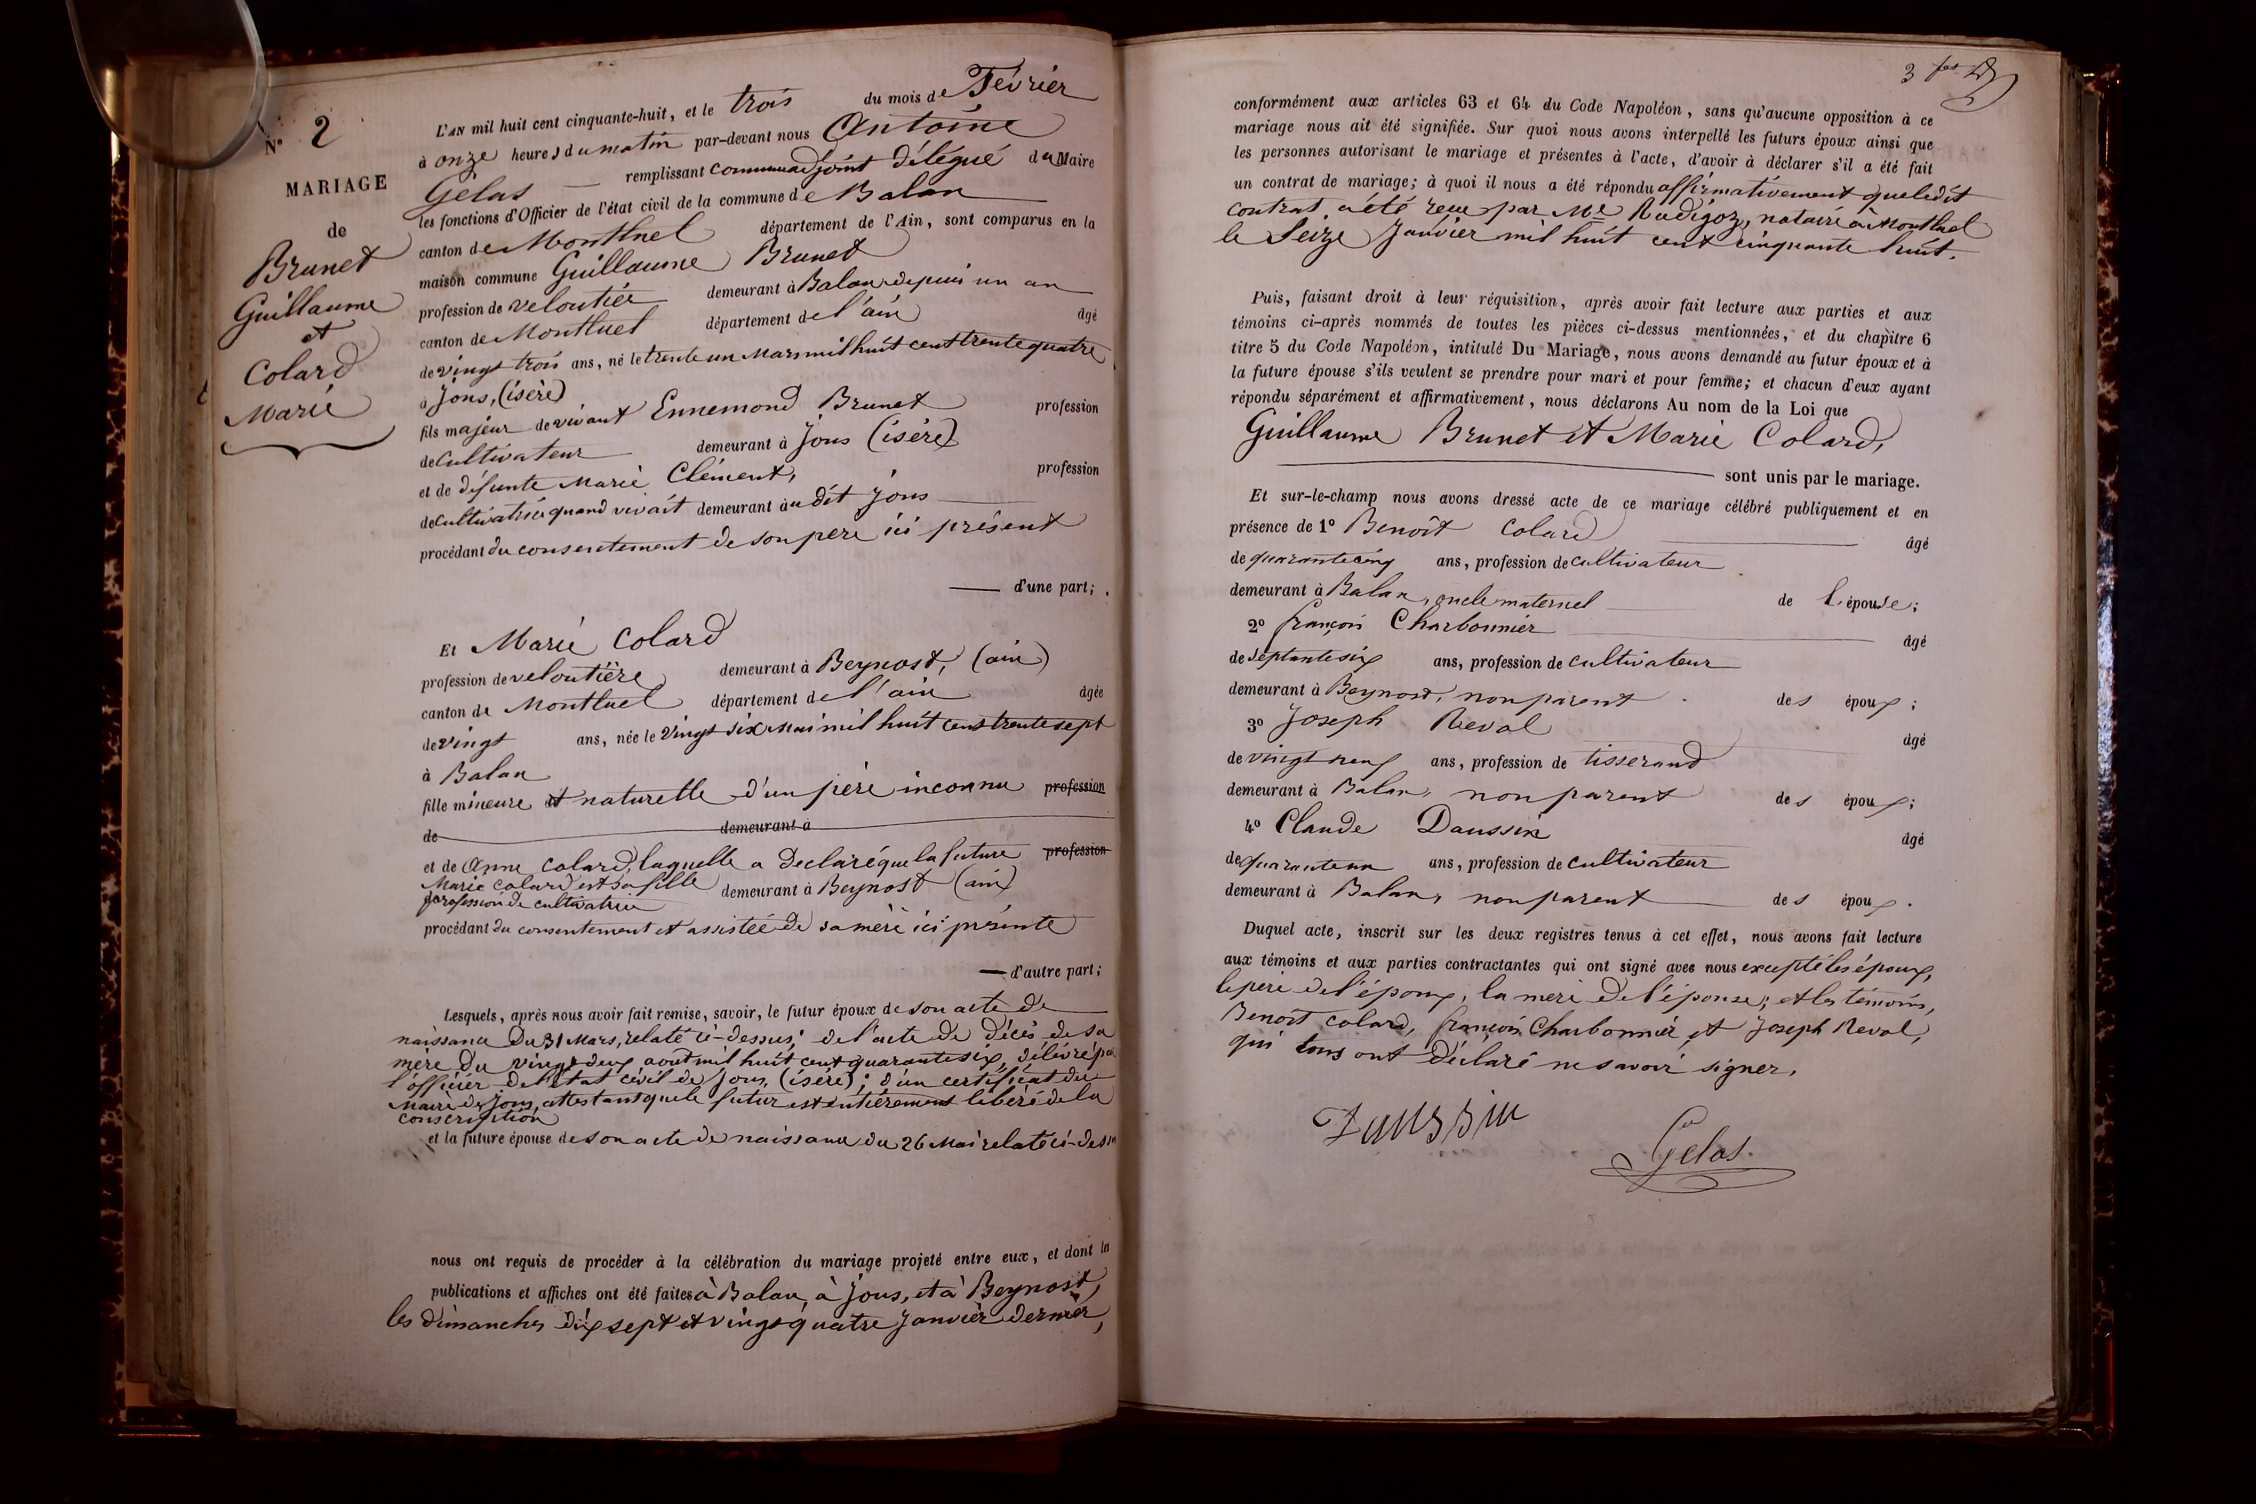 N° 2
MARIAGE
de
Brunet
Guillaume
et
Colard
Marie
L'AN mil huit cent cinquante-huit, et le trois du mois de Février
à onze heures du matin par-devant nous Antoine
Gelas remplissant comme adjoint délégué du Maire
les fonctions d'Officier de l'état civil de la commune de Balan
canton de Montluel département de l'Ain, sont comparus en la
maison commune Guillaume Brunet
profession de veloutier demeurant à Balan depuis un an
canton de Montluel département de l'ain âgé
de vingt trois ans, né le trente un Mars mil huit cent trente quatre
à Jons, (isère)
fils majeur de vivant Ennemond Brunet profession
de cultivateur demeurant à Jons (isère)
et de défunte Marie Clément, profession
de cultivatrice quand vivait demeurant au dit Jons
procédant du consentement de son père ici présent
d'une part;
Et Marie Colard
profession de veloutière demeurant à Beynost, (ain)
canton de Montluel département de l'ain âgée
de vingt ans, née le vingt six Mai mil huit cent trente sept
à Balan
fille mineure et naturelle d'un père inconnu profession
de demeurant à
et de Anne Colard, laquelle a déclaré que la future profession
Marie Colard est sa fille demeurant à Beynost (ain)
profession de cultivatrice
procédant du consentement et assistée de sa mère ici présente
d'autre part;
Lesquels, après nous avoir fait remise, savoir, le futur époux de son acte de
naissance du 31 Mars, relaté ci-dessus; de l'acte de décès de sa
mère du vingt deux aout mil huit cent quarante six, délivré par
l'officier de l'état civil de Jons, (isère); d'un certificat du
Maire de Jons, attestant que le futur est entièrement libéré de la
conscription
et la future épouse de son acte de naissance du 26 Mai relaté ci-dessus
nous ont requis de procéder à la célébration du mariage projeté entre eux, et dont les
publications et affiches ont été faites à Balan, à Jons, et à Beynost,
les dimanches dix sept et vingt quatre Janvier dernier,
3
conformément aux articles 63 et 64 du Code Napoléon, sans qu'aucune opposition à ce
mariage nous ait été signifiée. Sur quoi nous avons interpellé les futurs époux ainsi que
les personnes autorisant le mariage et présentes à l'acte, d'avoir à déclarer s'il a été fait
un contrat de mariage; à quoi il nous a été répondu affirmativement que ledit
contrat a été reçu par Me Rudigoz, notaire à Montluel
le Seize Janvier mil huit cent cinquante huit.
Puis, faisant droit à leur réquisition, après avoir fait lecture aux parties et aux
témoins ci-après nommés de toutes les pièces ci-dessus mentionnées, et du chapitre 6
titre 5 du Code Napoléon, intitulé Du Mariage, nous avons demandé au futur époux et à
la future épouse s'ils veulent se prendre pour mari et pour femme; et chacun d'eux ayant
répondu séparément et affirmativement, nous déclarons Au nom de la Loi que
Guillaume Brunet et Marie Colard,
sont unis par le mariage.
Et sur-le-champ nous avons dressé acte de ce mariage célébré publiquement et en
présence de 1° Benoît Colard âgé
de quarante cinq ans, profession de cultivateur
demeurant à Balan, oncle maternel de l'épouse;
2° françois Charbonnier âgé
de Septante six ans, profession de cultivateur
demeurant à Beynost, non parent des époux;
3° Joseph Reval âgé
de vingt neuf ans, profession de tisserand
demeurant à Balan, non parent des époux;
4° Claude Daussin âgé
de quarante un ans, profession de cultivateur
demeurant à Balan, non parent des époux.
Duquel acte, inscrit sur les deux registres tenus à cet effet, nous avons fait lecture
aux témoins et aux parties contractantes qui ont signé avec nous excepté les époux,
le père de l'époux, la mère de l'épouse; et les témoins,
Benoit Colard, françois Charbonnier et Joseph Reval,
qui tous ont déclaré ne savoir signer.
Daussin
Gelas.